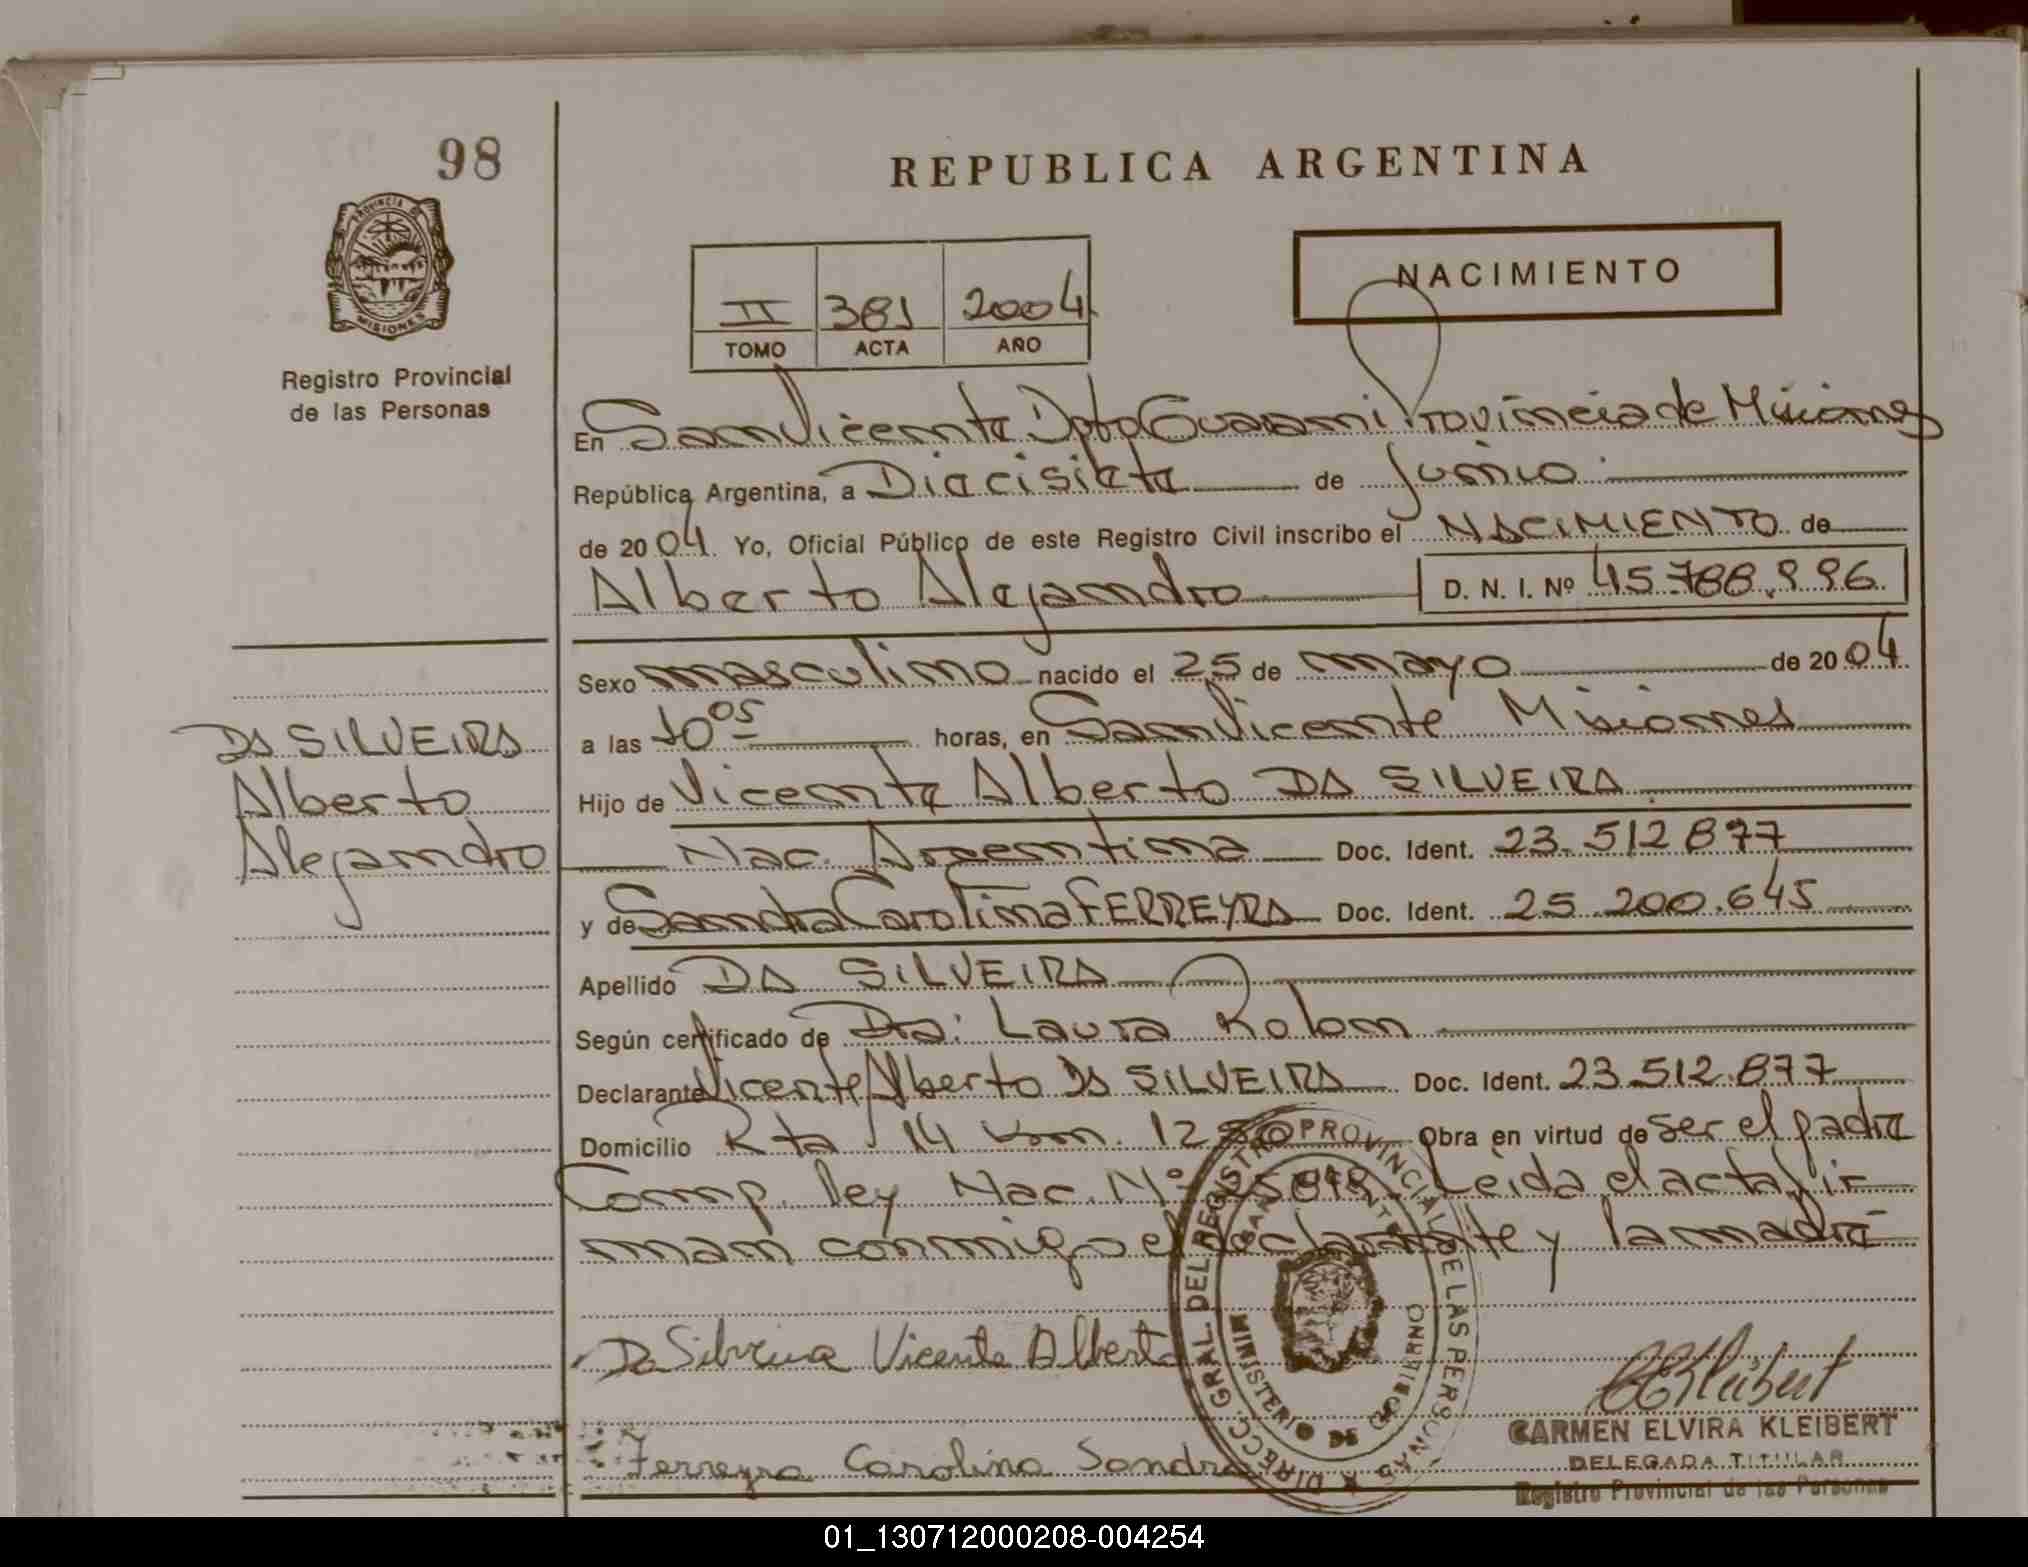 98
REPUBLICA ARGENTINA
PROVINCIA DE
MISIONES
Registro Provincial
de las Personas
II 381 2004
TOMO ACTA AÑO
NACIMIENTO
En San Vicente Dpto Guarani Provincia de Misiones
República Argentina, a Diecisiete de Junio
de 2004. Yo, Oficial Público de este Registro Civil inscribo el NACIMIENTO de
Alberto Alejandro D. N. I. Nº 45.788.996.
Sexo masculino nacido el 25 de mayo de 2004
DA SILVEIRA
Alberto
Alejandro
a las 10 05 horas, en San Vicente Misiones
Hijo de Vicente Alberto DA SILVEIRA
Nac. Argentina Doc. Ident. 23.512.877
y de Sandra Carolina FERREYRA Doc. Ident. 25.200.645
Apellido DA SILVEIRA
Según certificado de Dra: Laura Rolon
Declarante Vicente Alberto DA SILVEIRA Doc. Ident. 23.512.877
Domicilio Rta 14 km. Obra en virtud de ser el padre
Comp. ley Nac. Nº Leida el acta fir
man conmigo el declarante y la madre
DIRECC. GRAL. DEL REGISTRO PROVINCIAL DE LAS PERSONAS
MINISTERIO DE GOBIERNO
Da Silveira Vicente Alberto
CKleibert
CARMEN ELVIRA KLEIBERT
DELEGADA TITULAR
Registro Provincial de las Personas
Ferreyra Carolina Sandra
01_130712000208-004254